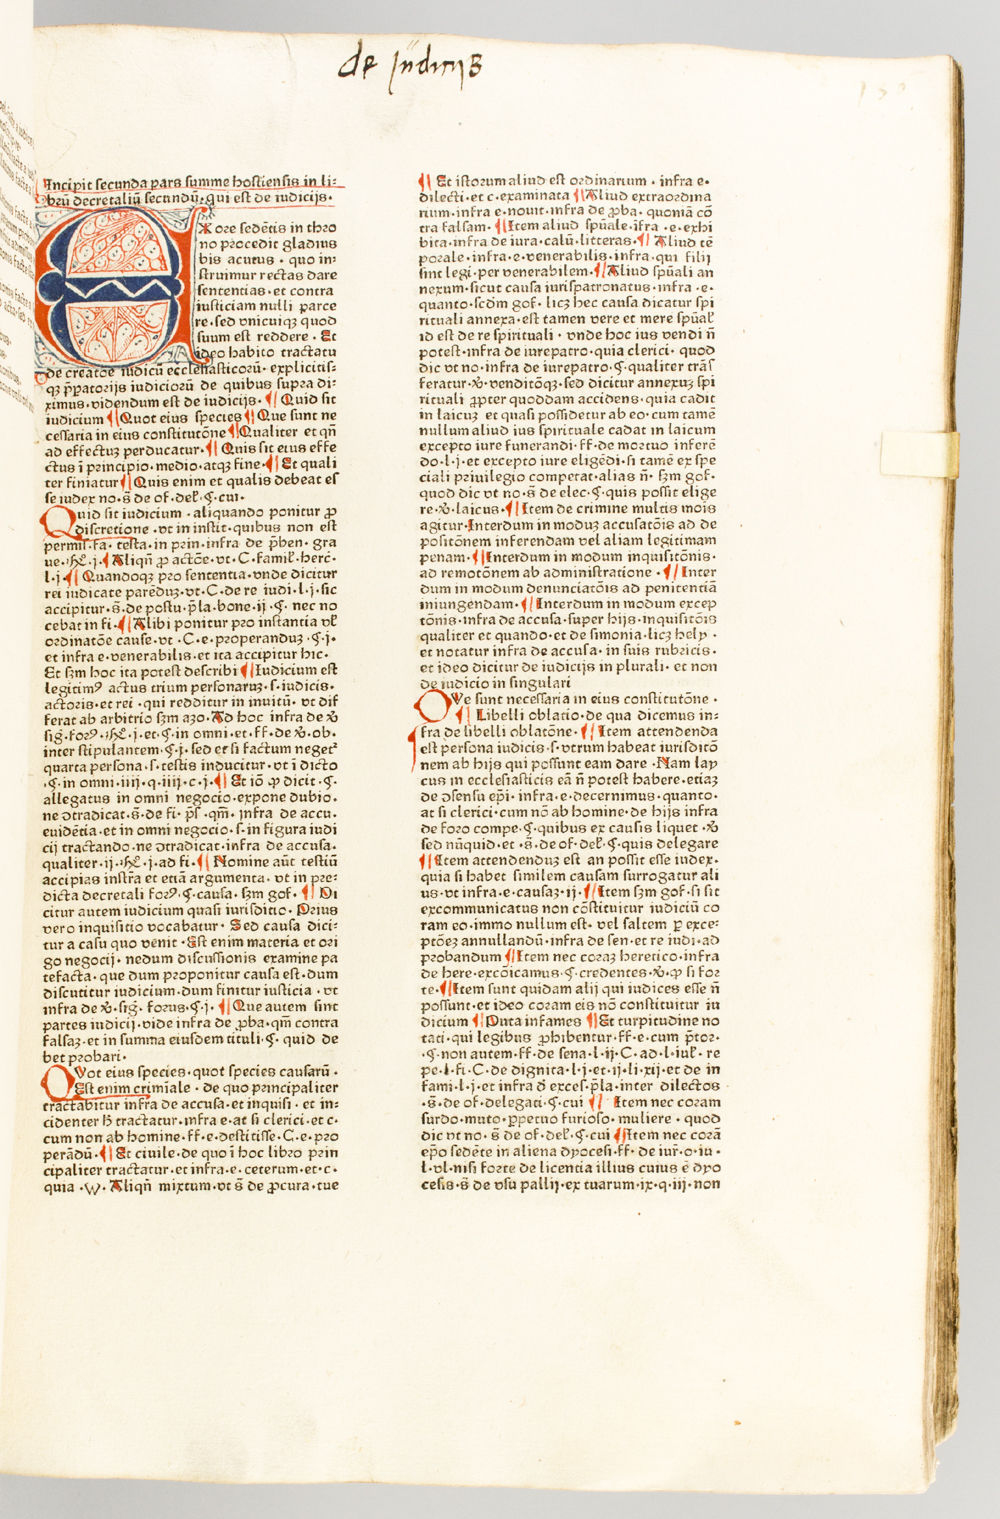 de Judicijs
Incipit secunda pars summe hostiensis in li⸗
brū decretaliū secundū· qui est de iudicijs·
EX ore sedētis in thro
no procedit gladius
bis acutus · quo in⸗
struimur rectas dare
sententias· et contra
iusticiam nulli parce
re· sed vnicuiqꝫ quod
suum est reddere · Et
ideo habito tractatu
de creatōe iudicū ecclesiasticorū· explicitis⸗
qꝫ p̄patorijs iudiciorū de quibus supra di⸗
ximus· videndum est de iudicijs· ¶ Quid sit
iudicium ¶ Quot eius species ¶ Que sunt ne
cessaria in eius constitutōne ¶ Qualiter et qn̄
ad effectuꝫ perducatur· ¶ Quis sit eius effe
ctus ī principio· medio· atqꝫ fine· ¶ Et quali
ter finiatur ¶ Quis enim et qualis debeat es
se iudex no· s̄ de of· del· ꝯ· cui·
Quid sit iudicium · aliquando ponitur ꝓ
discretione · vt in instit· quibus non est
permis· fa· testa· in prin· infra de p̄ben· gra
ue· j· ¶ Aliqn̄ ꝓ actōe· vt· C· famil· herc·
l· j· ¶ Quandoqꝫ pro sententia· vnde dicitur
rei iudicate parēduꝫ· vt· C· de re iudi· l· j· sic
accipitur· s̄· de postu· p̄la· bone· ij· ꝯ· nec no
cebat in fi· ¶ Alibi ponitur pro instantia vel
ordinatōe cause· vt · C· e· properanduꝫ · ꝯ· j·
et infra e· venerabilis· et ita accipitur hic·
Et scdm hoc ita potest describi ¶ Iudicium est
legitimꝰ actus trium personaruꝫ· s· iudicis·
actoris· et rei · qui redditur in inuitū· vt dif
ferat ab arbitrio scdm azo· Ad hoc infra de ꝟ
sig· forꝰ· j· et· ꝯ· in omni· et· ff· de ꝟ· ob·
inter stipulantem· ꝯ· j· sed et si factum neget
quarta persona· s· testis inducitur· vt ī dicto
· ꝯ· in omni· iiij· q· iiij· c· j· ¶ Et iō ꝙ dicit · ꝯ·
allegatus in omni negocio· expone dubio·
ne ↄtradicat· s̄· de fi· p̄s · qm̄· infra de accu·
euidētia· et in omni negocio· s· in figura iudi
cij tractando· ne ↄtradicat· infra de accusa·
qualiter· ij· j· ad fi· ¶ Nomine aūt testiū
accipias instr̄a et etiā argumenta· vt in pre⸗
dicta decretali forꝰ· ꝯ· causa· scdm gof· ¶ Di
citur autem iudicium quasi iurisditio· Prius
vero inquisitio vocabatur · Sed causa dici⸗
tur a casu quo venit · Est enim materia et ori
go negocij· nedum discussionis examine pa
tefacta· que dum proponitur causa est· dum
discutitur iudicium· dum finitur iusticia · vt
infra de ꝟ· sig· forus· ꝯ· j· ¶ Que autem sint
partes iudicij· vide infra de ꝓba· qm̄ contra
falsaꝫ· et in summa eiusdem tituli· ꝯ· quid de
bet probari·
Quot eius species· quot species causarū ·
Est enim crimiale · de quo principaliter
tractabitur infra de accusa· et inquisi · et in⸗
cidenter h̄ tractatur· infra e· at si clerici· et c·
cum non ab homine· ff· e· destitisse· C· e· pro
perādū· ¶ Et ciuile· de quo ī hoc libro prin
cipaliter tractatur· et infra· e· ceterum· et· c·
quia · v· Aliqn̄ mixtum· vt s̄ de ꝓcura· tue
¶ Et istorum aliud est ordinarium · infra e·
dilecti· et c· examinata ¶ Aliud extraordina
rium· infra e· nouit· infra de ꝓba· quoniā cō
tra falsam· ¶ Item aliud spūale· īfra · e· exhi
bita· infra de iura· calū· litteras· ¶ Aliud tē
porale· infra· e· venerabilis· infra· qui filij
sint legi· per venerabilem· ¶ Aliud spūali an
nexum· sicut causa iurispatronatus· infra · e·
quanto· scdm gof· licꝫ hec causa dicatur spi
rituali annexa· est tamen vere et mere spūal
id est de re spirituali · vnde hoc ius vendi n̄
potest· infra de iurepatro· quia clerici· quod
dic vt no· infra de iurepatro· ꝯ· qualiter trās
feratur· ꝟ· venditōqꝫ· sed dicitur annexuꝫ spi
rituali ꝓpter quoddam accidens· quia cadit
in laicuꝫ et quasi possidetur ab eo· cum tamē
nullum aliud ius spirituale cadat in laicum
excepto iure funerandi· ff· de mortuo inferē
do· l· j· et excepto iure eligēdi· si tamē ex spe
ciali priuilegio competat· alias n̄· scdm gof·
quod dic vt no· s̄ de elec· ꝯ· quis possit elige
re· ꝟ· laicus· ¶ Item de crimine multis mōis
agitur· Interdum in moduꝫ accusatōis ad de
positōnem inferendam vel aliam legitimam
penam· ¶ Interdum in modum inquisitōnis·
ad remotōnem ab administratione · ¶ Inter
dum in modum denunciatōis ad penitentiā
iniungendam· ¶ Interdum in modum excep
tōnis· infra de accusa· super hijs· inquisitōis
qualiter et quando· et de simonia· licꝫ hely ·
et notatur infra de accusa· in suis rubricis·
et ideo dicitur de iudicijs in plurali· et non
de iudicio in singulari
Que sunt necessaria in eius constitutōne ·
¶ Libelli oblatio· de qua dicemus in⸗
fra de libelli oblatōne· ¶ Item attendenda
est persona iudicis· s· vtrum habeat iurisditō
nem ab hijs qui possunt eam dare · Nam lay
cus in ecclesiasticis eā n̄ potest habere· etiaꝫ
de ↄsensu ep̄i· infra· e· decernimus· quanto·
at si clerici· cum nō ab homine· de hijs infra
de foro compe· ꝯ· quibus ex causis liquet · ꝟ
sed nūquid· et · s̄· de of· del· ꝯ· quis delegare
¶ Item attendenduꝫ est an possit esse iudex·
quia si habet similem causam surrogatur ali
us· vt infra· e· causaꝫ· ij· ¶ Item scdm gof· si sit
excommunicatus non cōstituitur iudiciū co
ram eo· immo nullum est· vel saltem per exce⸗
ptōeꝫ annullandū· infra de sen· et re iudi· ad
probandum ¶ Item nec coraꝫ heretico· infra
de here· excōicamus· ꝯ· credentes· ꝟ· ꝙ si for
te· ¶ Item sunt quidam alij qui iudices esse n̄
possunt· et ideo coram eis nō constituitur iu
dicium ¶ Puta infames ¶ Et turpitudine no
tati· qui legibus ꝓhibentur· ff· e· cum p̄tor·
· ꝯ· non autem· ff· de sena· l· ij· C· ad· l· iul· re
pe· l· fi· C· de dignita· l· j· et· ij· li· xij· et· de in
fami· l· j· et infra d̄ exces· p̄la· inter dilectos ·
· s̄· de of· delegati· ꝯ· cui ¶ Item nec coram
surdo· muto· ꝑpetuo furioso· muliere · quod
dic vt no· s̄ de of· del· ꝯ· cui ¶ Item nec corā
ep̄o sedēte in aliena dyocesi· ff· de iur· o· iu ·
l· vl· nisi forte de licentia illius cuius ē dyo
cesis· s̄ de vsu pallij· ex tuarum· ix· q· iij· non